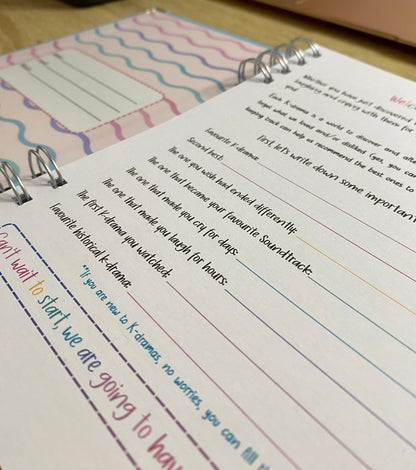 We
Whether you have just discovered
laughing and crying with these for
you!
Each K-drama is a world to discover and
forget what we loved and/or disliked. Guys, you can
keeping track can help us recommend the best ones to
First, let's write down some important
Favourite K-drama:
Second best:
The one you wish had ended differently:
The one that became your favourite Soundtrack:
The one that made you cry for days:
The one that made you laugh for hours:
The first K-drama you watched:
Favourite historical k-drama:
**If you are new to K-dramas, no worries, you can fill
Can't wait to start, we are going to hav